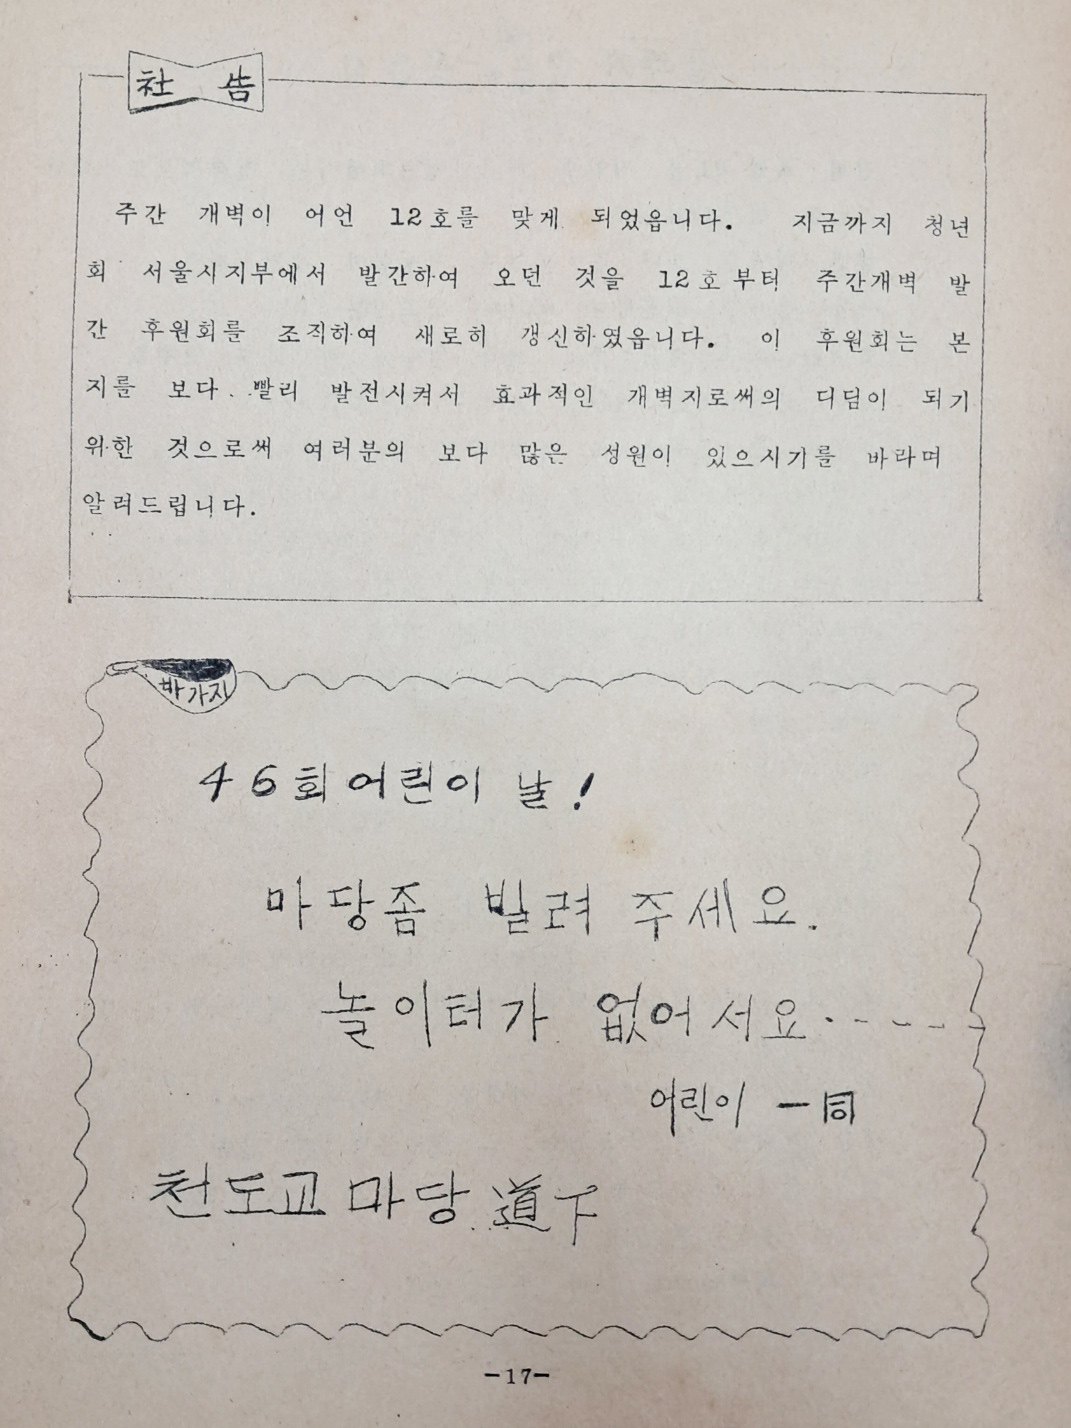 社告
주간 개벽이 어언 12호를 맞게 되었읍니다. 지금까지 청년
회 서울시지부에서 발간하여 오던 것을 12호부터 주간개벽 발
간 후원회를 조직하여 새로히 갱신하였읍니다. 이 후원회는 본
지를 보다 빨리 발전시켜서 효과적인 개벽지로써의 디딤이 되기
위한 것으로써 여러분의 보다 많은 성원이 있으시기를 바라며
알려드립니다.
바가지
46회 어린이 날!
마당좀 빌려 주세요.
놀이터가 없어서요······
어린이 一同
천도교 마당 道下
-17-